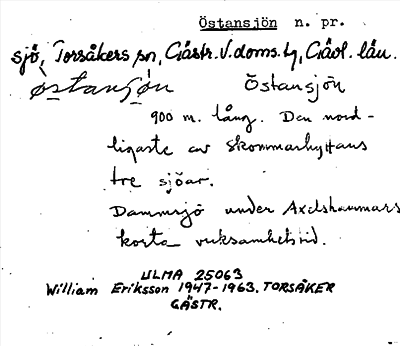 Östansjön n. pr.
sjö, Torsåkers sn, Gästr. V. doms. h, Gävl. län.
östansjön Östansjön
900 m. lång. Den nord-
ligaste av Skommarhyttans
tre sjöar.
Dammsjö under Axelshammars
korta verksamhetstid.
ULMA 25063
William Eriksson 1947-1963. TORSÅKER
GÄSTR.